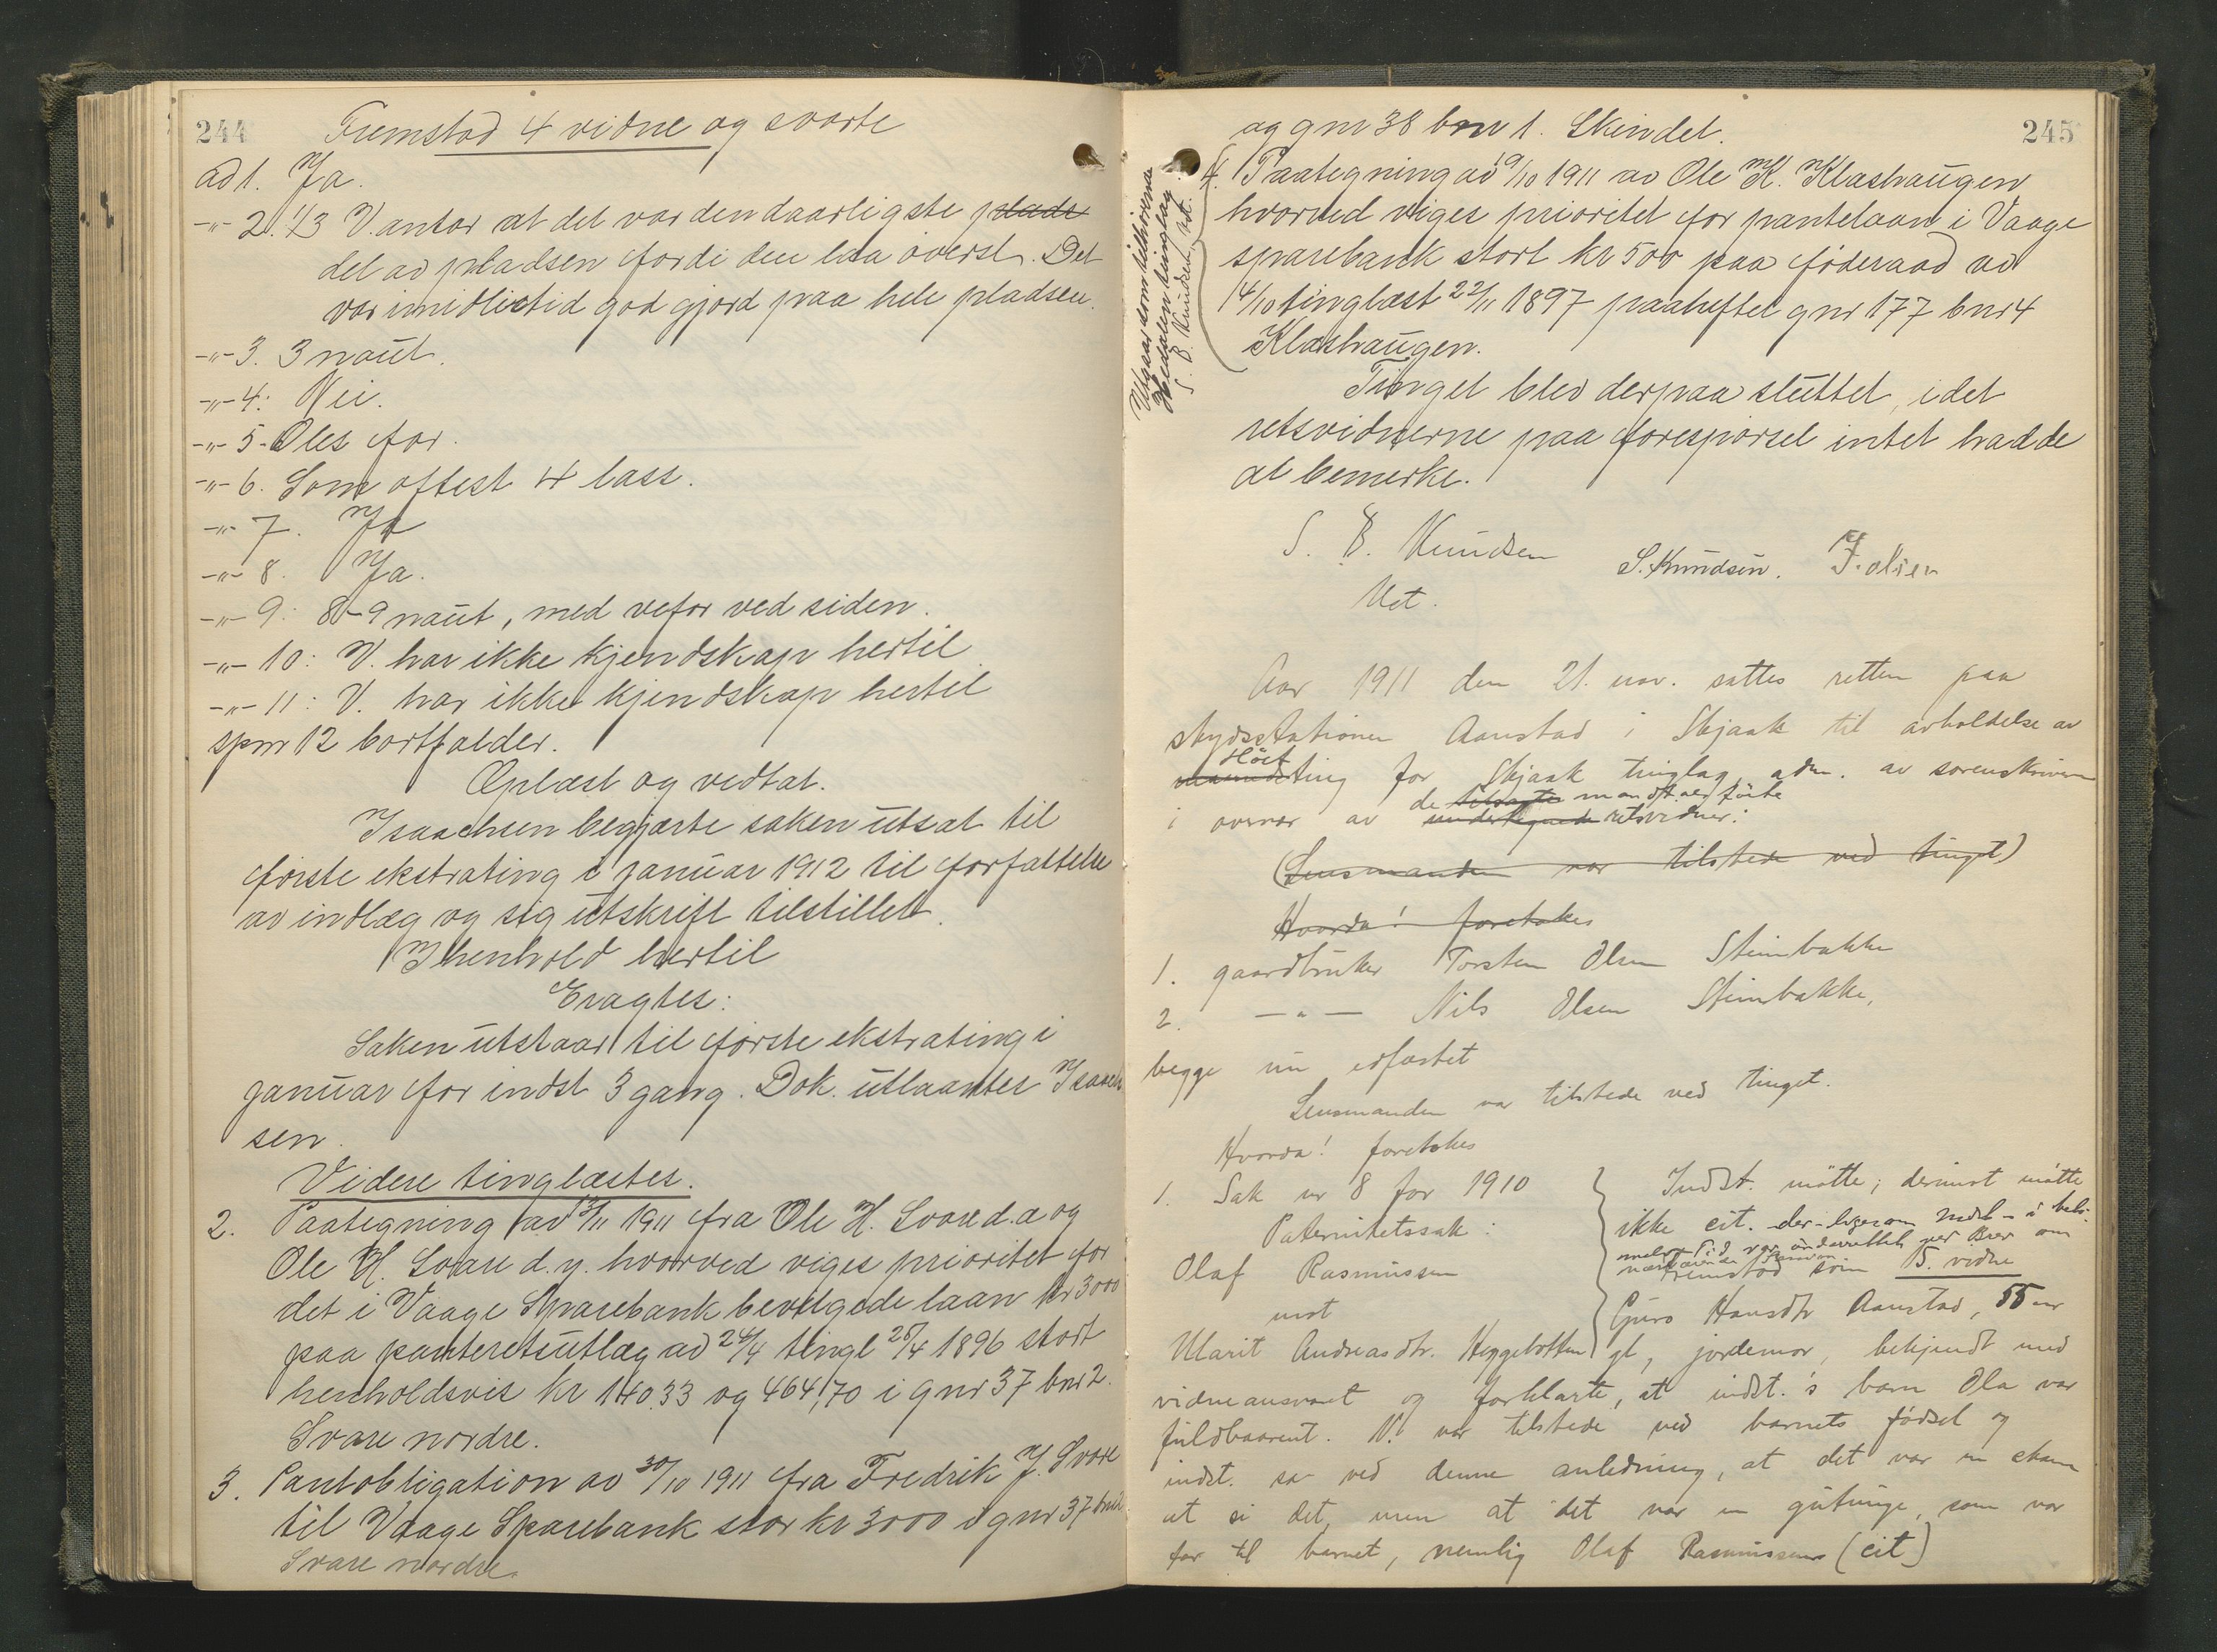 244
Fremstod 4 vidne og svarte
ad 1. Ja.
-"- 2. 1/3 V. antar at det var den daarligste plads
del av pladsen fordi den laa øverst. Det
var imidlertid god gjord paa hele pladsen.
-"- 3. 3 naut.
-"- 4: Nei.
-"- 5- Oles far.
-"- 6. Som oftest 4 lass.
-"- 7. Ja
-"- 8. Ja.
-"- 9: 8-9 naut, med vefor ved siden.
-"- 10: V. har ikke kjendskap hertil
-"- 11: V. har ikke kjendskap hertil
spm 12 bortfalder.
Oplæst og vedtat.
Isaachsen begjærte saken utsat til
første ekstrating i januar 1912 til forfattelse
av indlæg og sig utskrift tilstillet.
I henhold hertil
Eragtes:
Saken utstaar til første ekstrating i
januar for indst 3 gang. Dok. utlaantes Isaach
sen.
Videre tinglæstes.
2. Paategning av 13/11 1911 fra Ole H. Svare d.æ og
Ole H. Svare d.y. hvorved viges prioritet for
det i Vaage Sparebank bevilgede laan kr 3000
paa panteretsutlæg av 24/4 tingl 25/4 1896 stort
henholdsvis kr 140.33 og 464,70 i gnr 37 bnr 2.
Svare nordre.
3. Pantobligation av 30/10 1911 fra Fredrik J. Svare
til Vaage Sparebank stor kr 3000 i gnr 37 bnr 2
Svare nordre.
245
og gnr 38 bnr 1. Skindel.
4. Paategning av 19/10 1911 av Ole K. Klashaugen
hvorved viges prioritet for pantelaan i Vaage
sparebank stort kr 500 paa føderaad av
14/10 tinglæst 22/11 1897 paaheftet gnr 177 bnr 4
Klashaugen.
Utgaar som tilhørende
Hedalen tinglag.
S. B. Knudsen, cst.
Tinget blev derpaa sluttet, idet
retsvidnerne paa forespørsel intet hadde
at bemerke.
S. B. Knudsen S. Knudsen. J. Olsen
cst.
Aar 1911 den 21. nov. sattes retten paa
skydsstationen Aanstad i Skjaak til avholdelse av
høst
maanedsting for Skjaak tinglag, adm. av sorenskriveren
de tilsagte mandtalførte
i overvær av undertegnede retsvidner:
(Lensmanden var tilstede ved tinget)
Hvorda! foretokes
1. gaardbruker Torsten Olsen Steinbakke
2. -"- Nils Olsen Steinbakke,
begge nu edfæstet
Lensmanden var tilstede ved tinget.
Hvorda! foretokes
1. Sak nr 8 for 1910
Paternitetssak:
Olaf Rasmussen
mot
Marit Andreasdtr. Heggebotten
Indst. møtte; derimot møtte
ikke cit. der ligesom indst i beti-
melig tid var underrettet ved brev om
Fremstod som 5. vidne
Guro Hansdtr Aanstad, 55 aar
gl, jordemor, bekjendt med
vidneansvaret og forklarte, at indst.'s barn Ola var
fuldbaarent. V. var tilstede ved barnets fødsel og
indst. sa ved denne anledning, at det var en skam
at si det, men at det var en gutunge, som var
far til barnet, nemlig Olaf Rasmussen (cit)